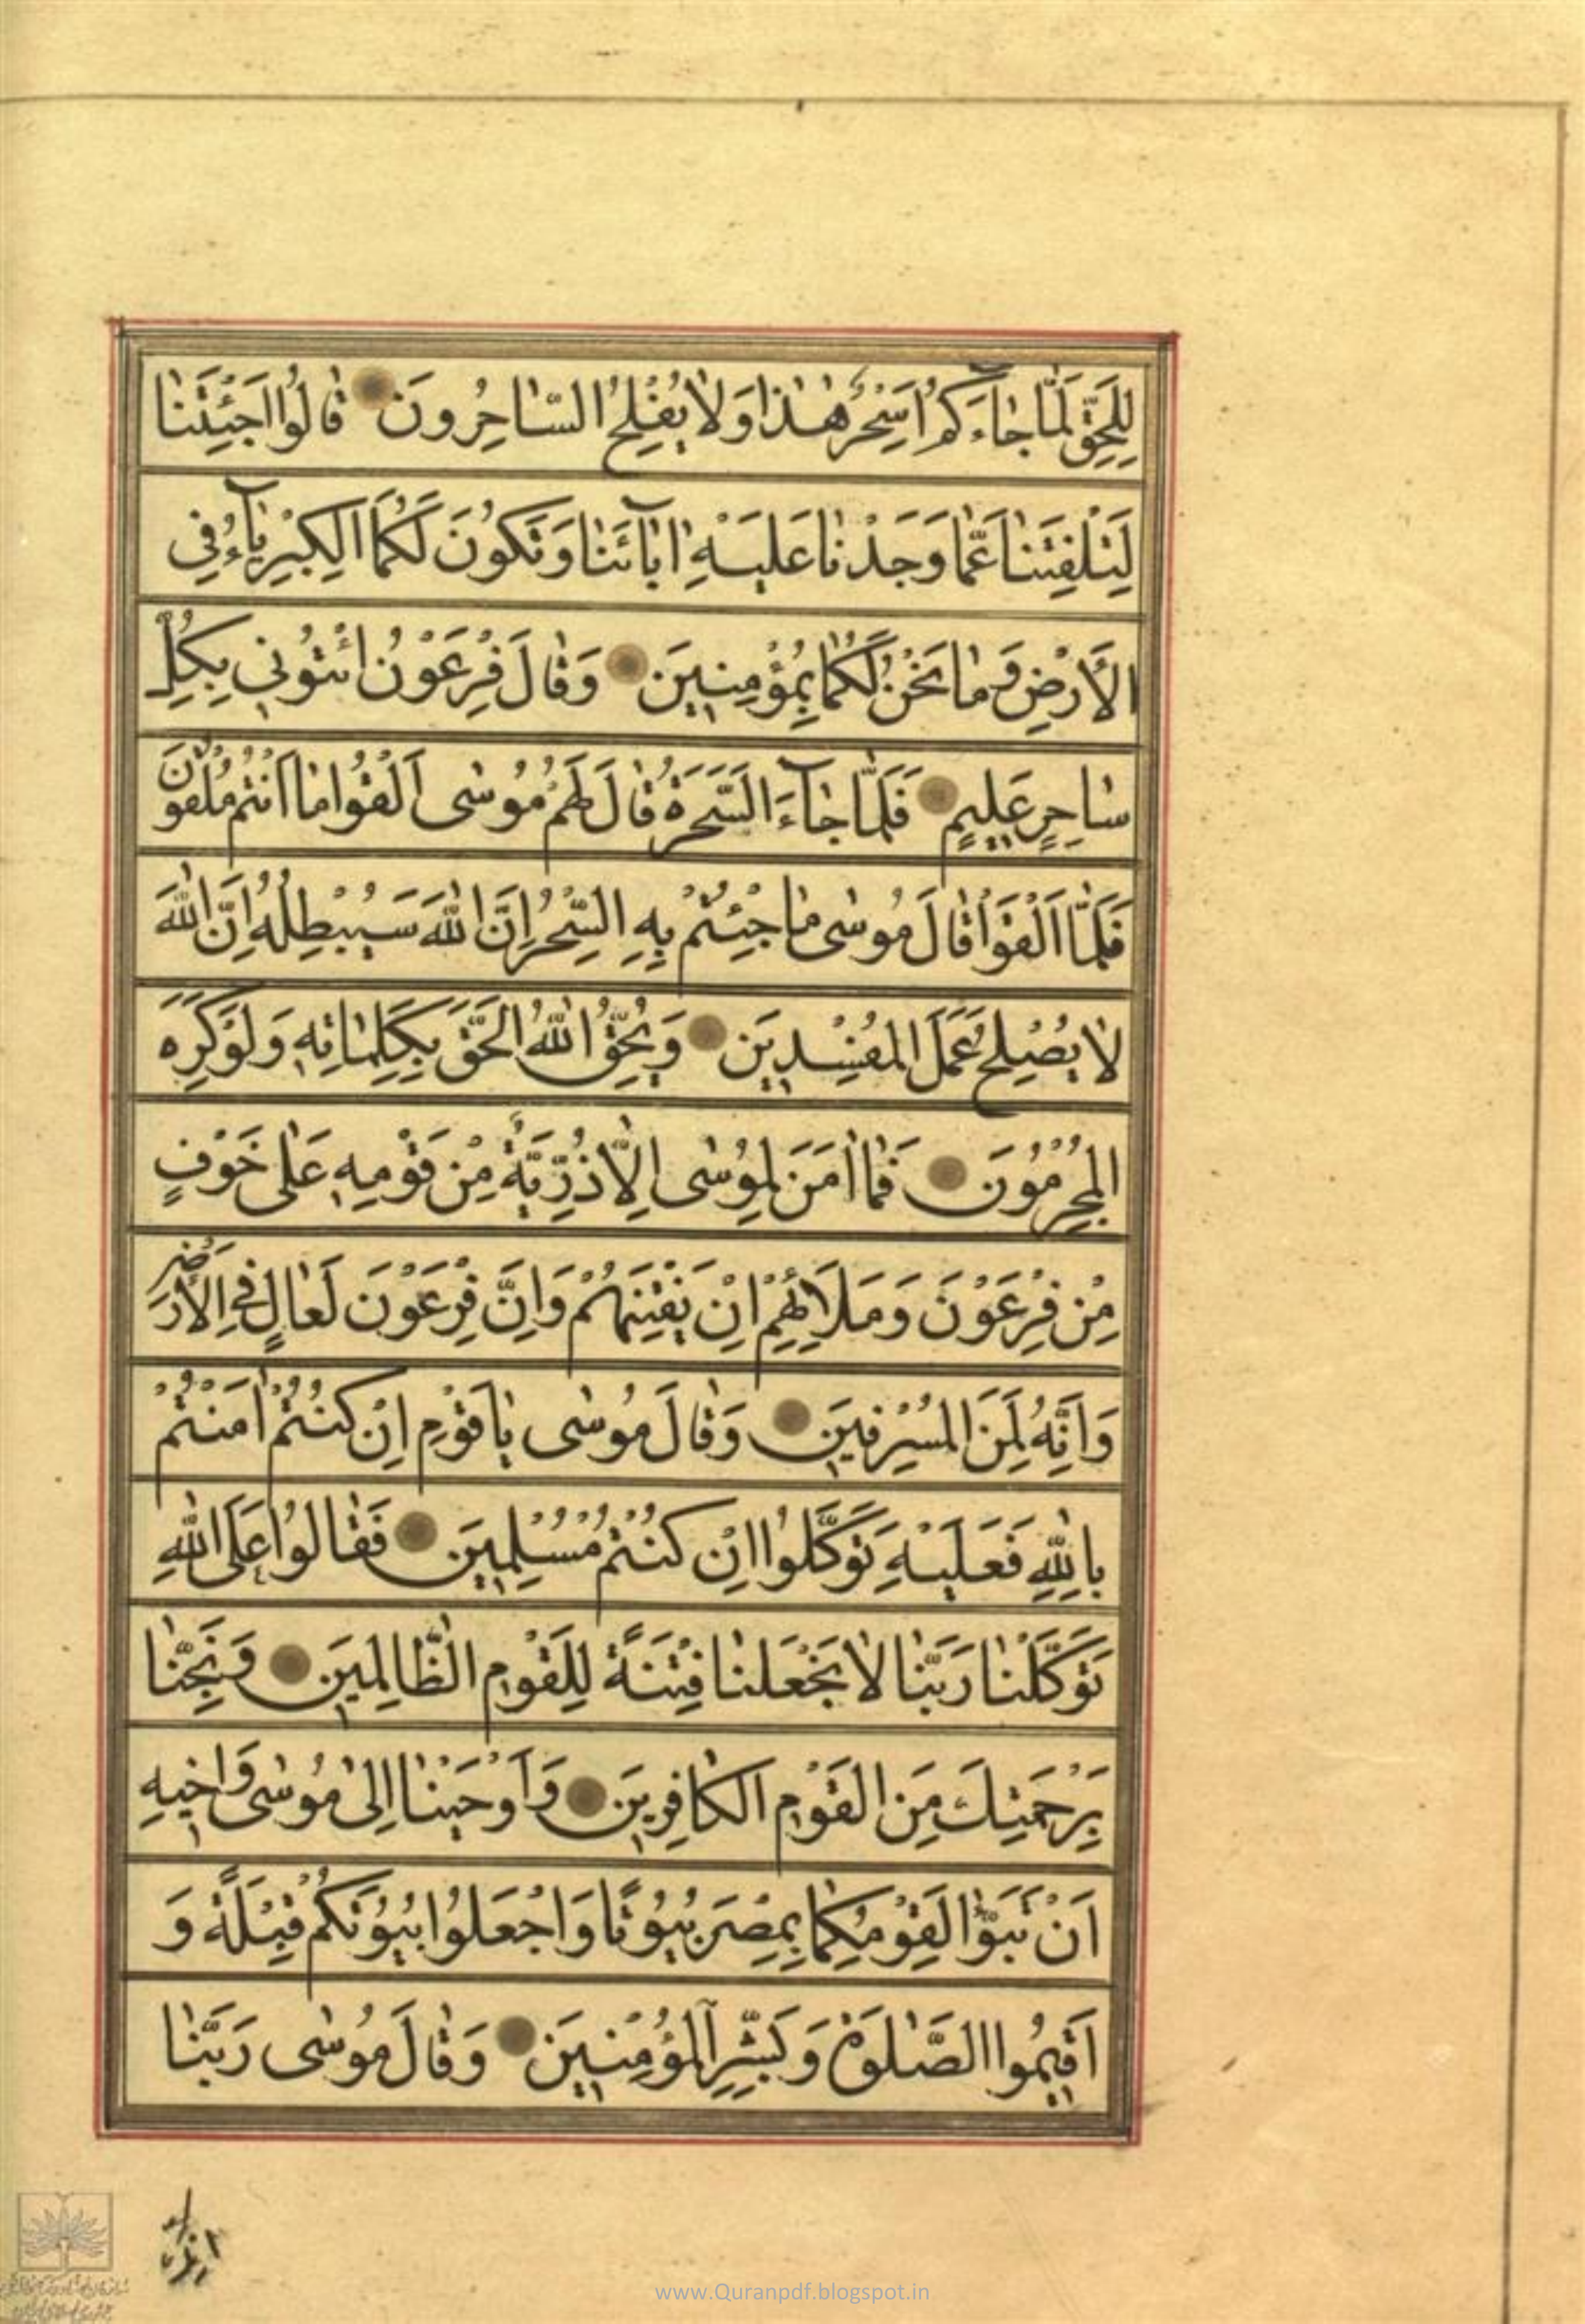 لِلْحَقِّ لَمّٰا جٰاءَكُمْ اَسِحْرٌ هٰذٰا وَلٰا يُفْلِحُ السّٰاحِرُونَ قٰالُوا اَجِئْتَنٰا
لِتَلْفِتَنٰا عَمّٰا وَجَدْنٰا عَلَيْهِ اٰبٰٓائَنٰا وَتَكُونَ لَكُمَا الْكِبْرِيٰٓاءُ فِي
الْاَرْضِ وَمٰا نَحْنُ لَكُمٰا بِمُؤْمِنِينَ وَقٰالَ فِرْعَوْنُ ائْتُونِي بِكُلِّ
سٰاحِرٍ عَلِيمٍ فَلَمّٰا جٰٓاءَ السَّحَرَةُ قٰالَ لَهُمْ مُوسٰى اَلْقُوا مٰا اَنْتُمْ مُلْقُونَ
فَلَمّٰا اَلْقَوْا قٰالَ مُوسٰى مٰا جِئْتُمْ بِهِ السِّحْرُ اِنَّ اللّٰهَ سَيُبْطِلُهُ اِنَّ اللّٰهَ
لٰا يُصْلِحُ عَمَلَ الْمُفْسِدِينَ وَيُحِقُّ اللّٰهُ الْحَقَّ بِكَلِمٰاتِهِ وَلَوْ كَرِهَ
الْمُجْرِمُونَ فَمٰا اٰمَنَ لِمُوسٰى اِلّٰا ذُرِّيَّةٌ مِنْ قَوْمِهِ عَلٰى خَوْفٍ
مِنْ فِرْعَوْنَ وَمَلَاِئِهِمْ اَنْ يَفْتِنَهُمْ وَاِنَّ فِرْعَوْنَ لَعٰالٍ فِي الْاَرْضِ
وَاِنَّهُ لَمِنَ الْمُسْرِفِينَ وَقٰالَ مُوسٰى يٰا قَوْمِ اِنْ كُنْتُمْ اٰمَنْتُمْ
بِاللّٰهِ فَعَلَيْهِ تَوَكَّلُوا اِنْ كُنْتُمْ مُسْلِمِينَ فَقٰالُوا عَلَى اللّٰهِ
تَوَكَّلْنٰا رَبَّنٰا لٰا تَجْعَلْنٰا فِتْنَةً لِلْقَوْمِ الظّٰالِمِينَ وَنَجِّنٰا
بِرَحْمَتِكَ مِنَ الْقَوْمِ الْكٰافِرِينَ وَاَوْحَيْنٰا اِلٰى مُوسٰى وَاَخِيهِ
اَنْ تَبَوَّاٰ لِقَوْمِكُمٰا بِمِصْرَ بُيُوتًا وَاجْعَلُوا بُيُوتَكُمْ قِبْلَةً وَ
اَقِيمُوا الصَّلٰوةَ وَبَشِّرِ الْمُؤْمِنِينَ وَقٰالَ مُوسٰى رَبَّنٰا
www.Quranpdf.blogspot.in